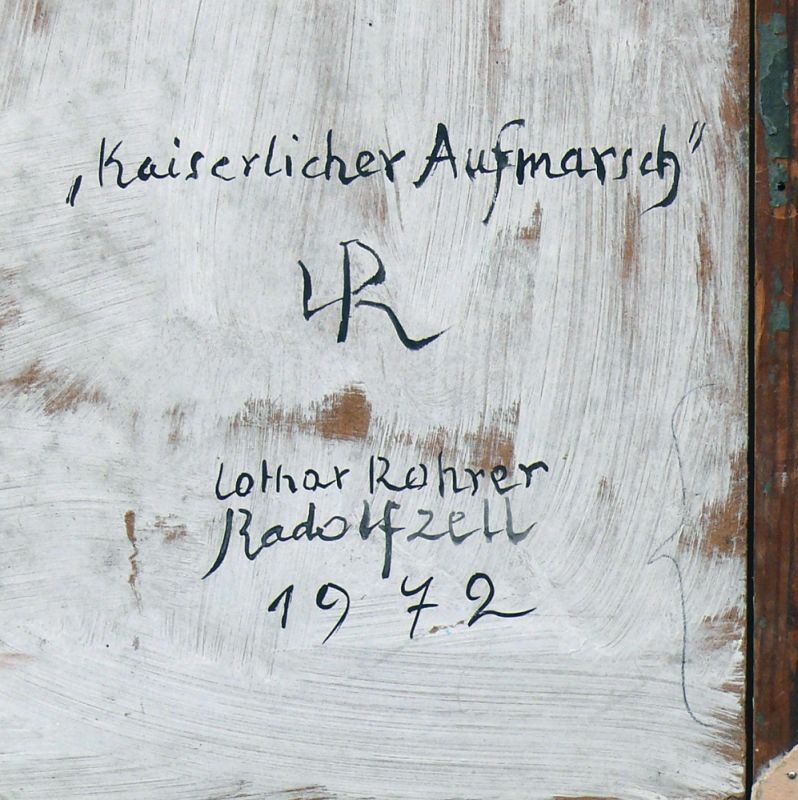 „Kaiserlicher Aufmarsch"
LR
Lothar Rohrer
Radolfzell
1972